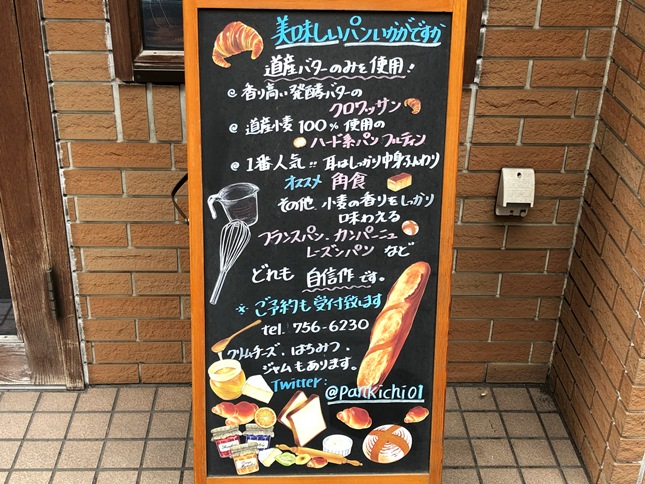 美味しいパンいかがですか
道産バターのみを使用!
@ 香り高い発酵バターの
クロワッサン
@ 道産小麦100% 使用の
ハード系パン フルティン
@ 1番人気!! 耳はしっかり中身ふんわり
オススメ 角食
その他 小麦の香りをしっかり
味わえる
フランスパン、カンパーニュ
レーズンパン など
どれも 自信作です。
※ ご予約も受付致します
tel. 756-6230
クリームチーズ、はちみつ、
ジャムもあります。
Twitter:
@Pankichi01